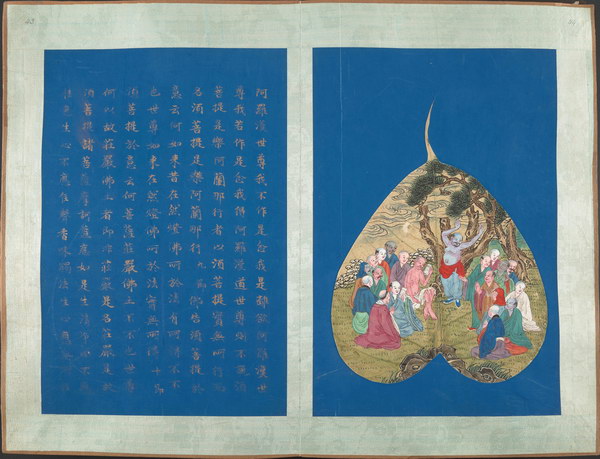 阿羅漢世尊我不作是念我是離欲阿羅漢世
尊我若作是念我得阿羅漢道世尊則不說須
菩提是樂阿蘭那行者以須菩提實無所行而
名須菩提是樂阿蘭那行 九 佛告須菩提於
意云何如來昔在然燈佛所於法有所得不不
也世尊如來在然燈佛所於法實無所得 十
須菩提於意云何菩薩莊嚴佛土不不也世尊
何以故莊嚴佛土者即非莊嚴是名莊嚴是故
須菩提諸菩薩摩訶薩應如是生清淨心不應
住色生心不應住聲香味觸法生心應無所住